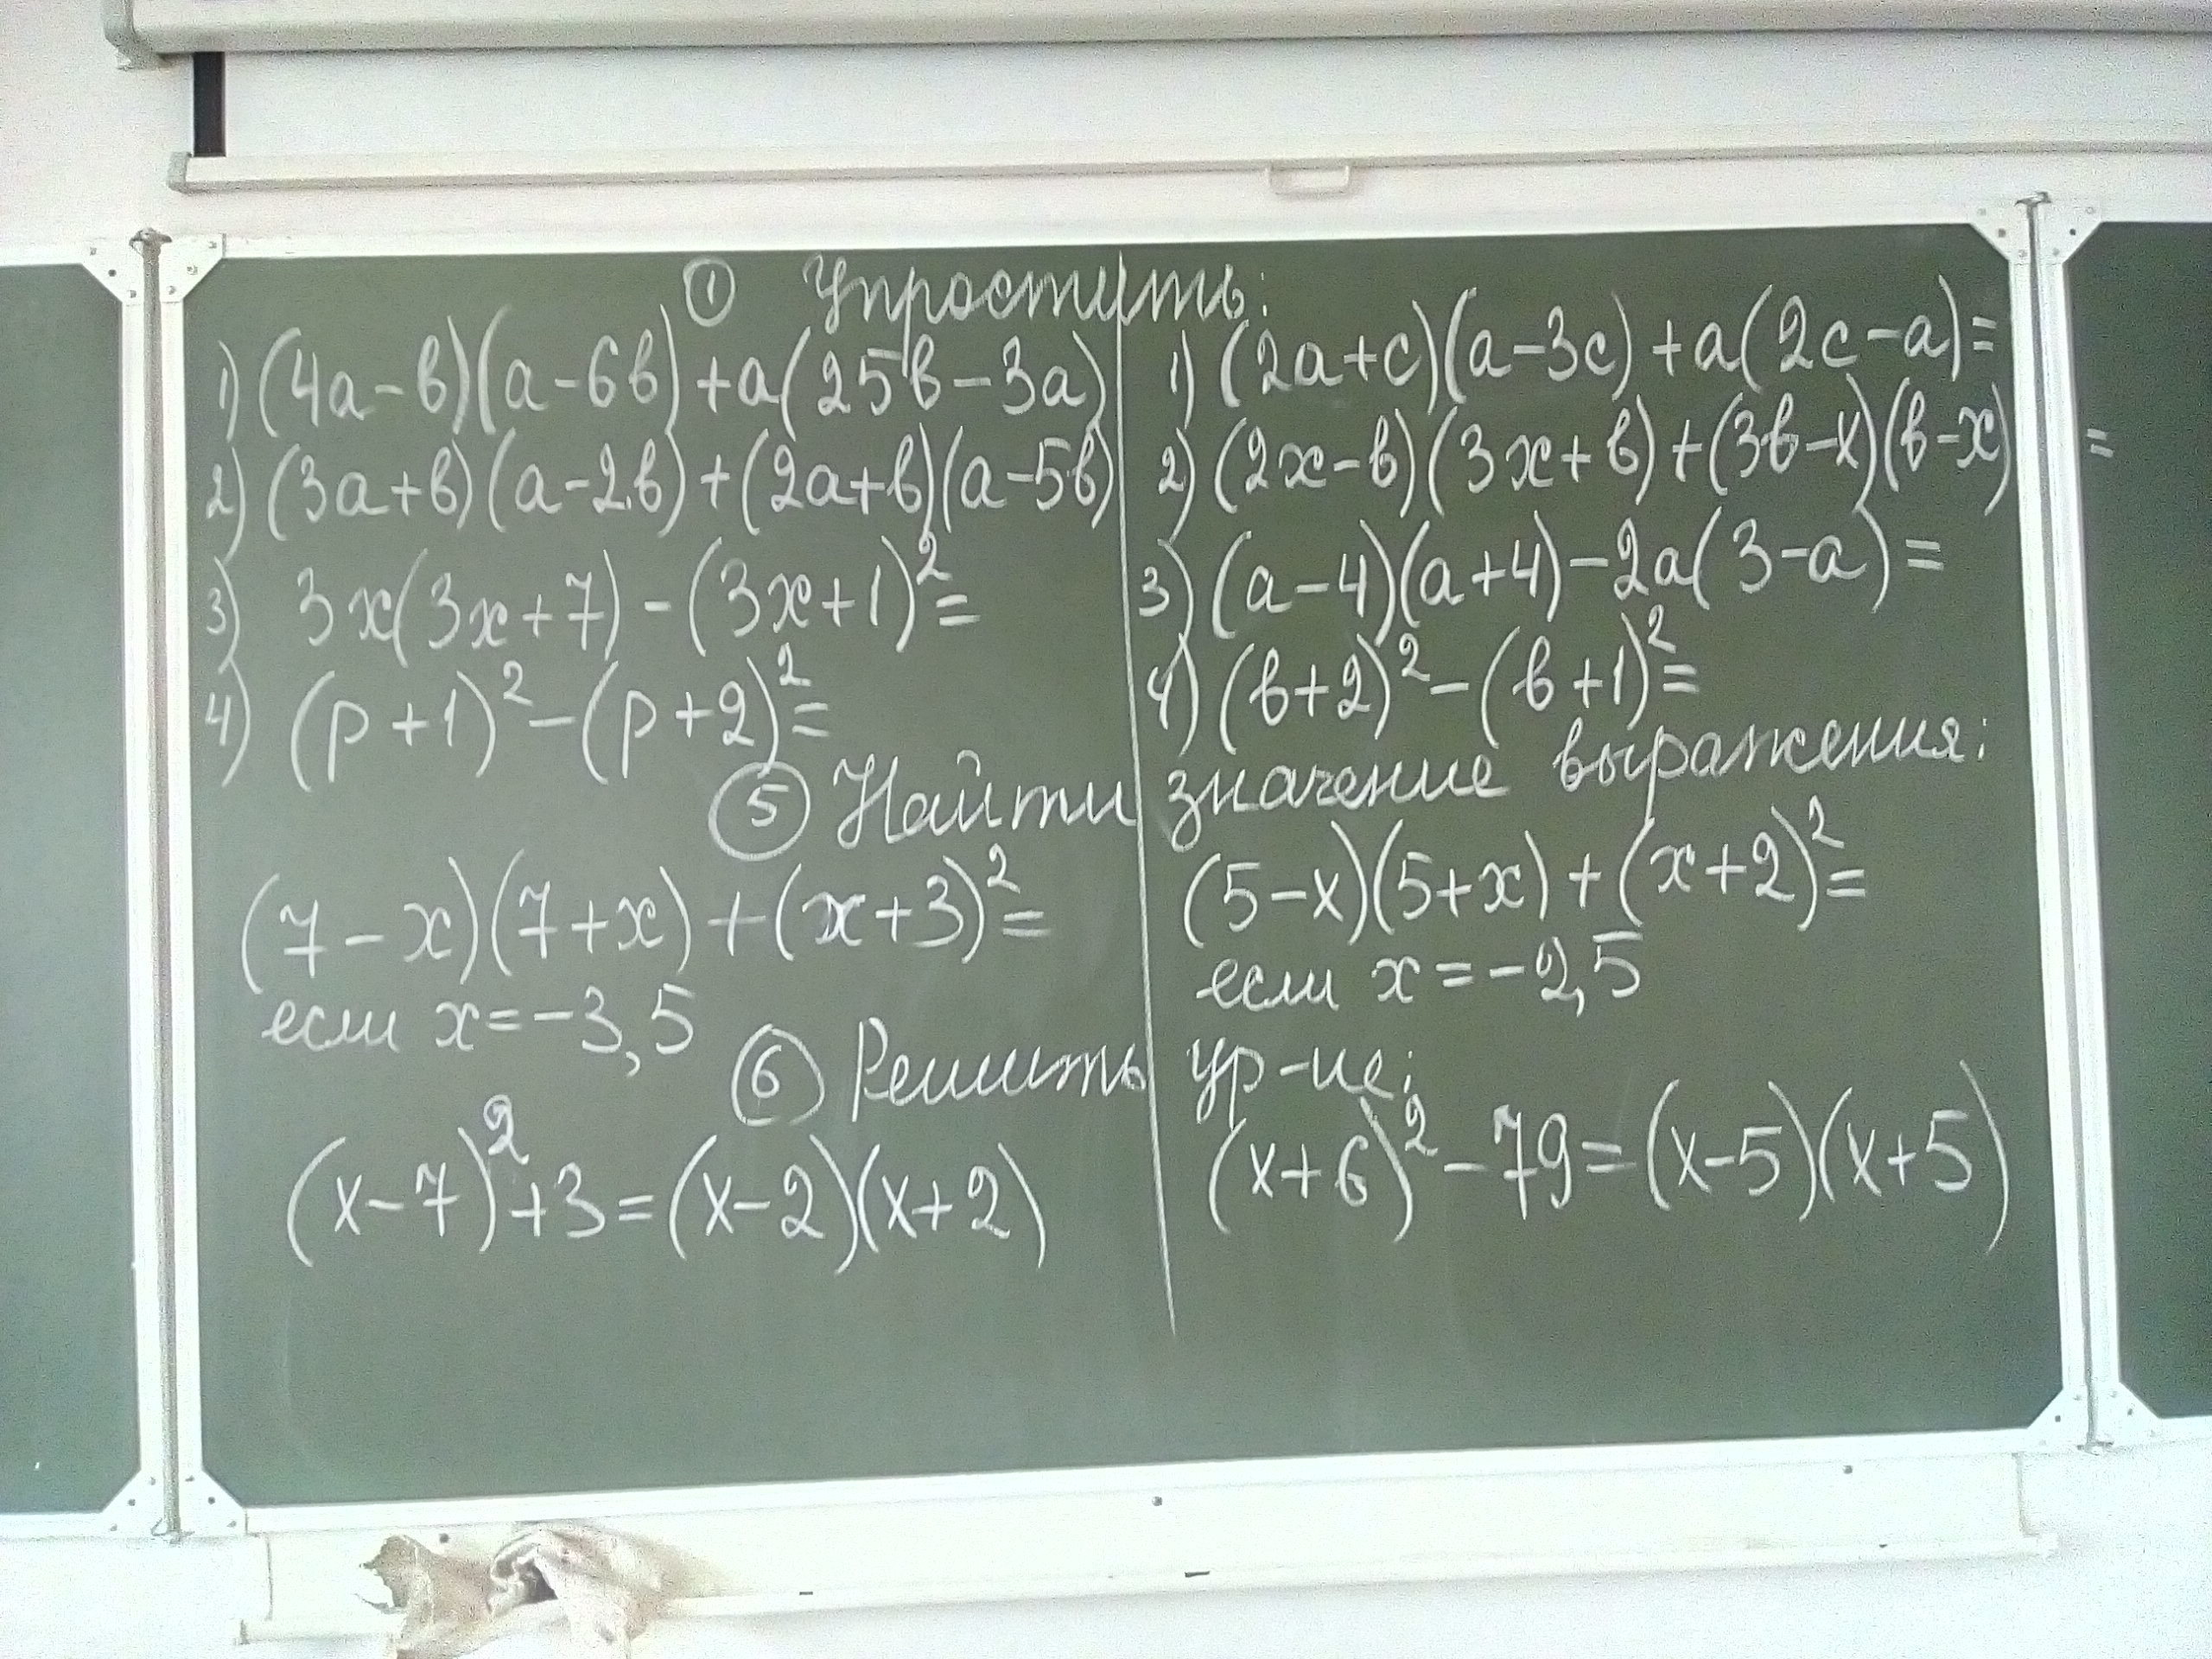 ① Упростить:
1) (4a-в)(a-6в)+a(25в-3a)
2) (3a+в)(a-2в)+(2a+в)(a-5в)
3) 3x(3x+7)-(3x+1)²=
4) (p+1)²-(p+2)²=
1) (2a+c)(a-3c)+a(2c-a)=
2) (2x-в)(3x+в)+(3в-x)(в-x) =
3) (a-4)(a+4)-2a(3-a)=
4) (в+2)²-(в+1)²=
⑤ Найти значение выражения:
(7-x)(7+x)+(x+3)²=
если x=-3,5
(5-x)(5+x)+(x+2)²=
если x=-2,5
⑥ Решить ур-ие:
(x-7)²+3=(x-2)(x+2)
(x+6)²-79=(x-5)(x+5)